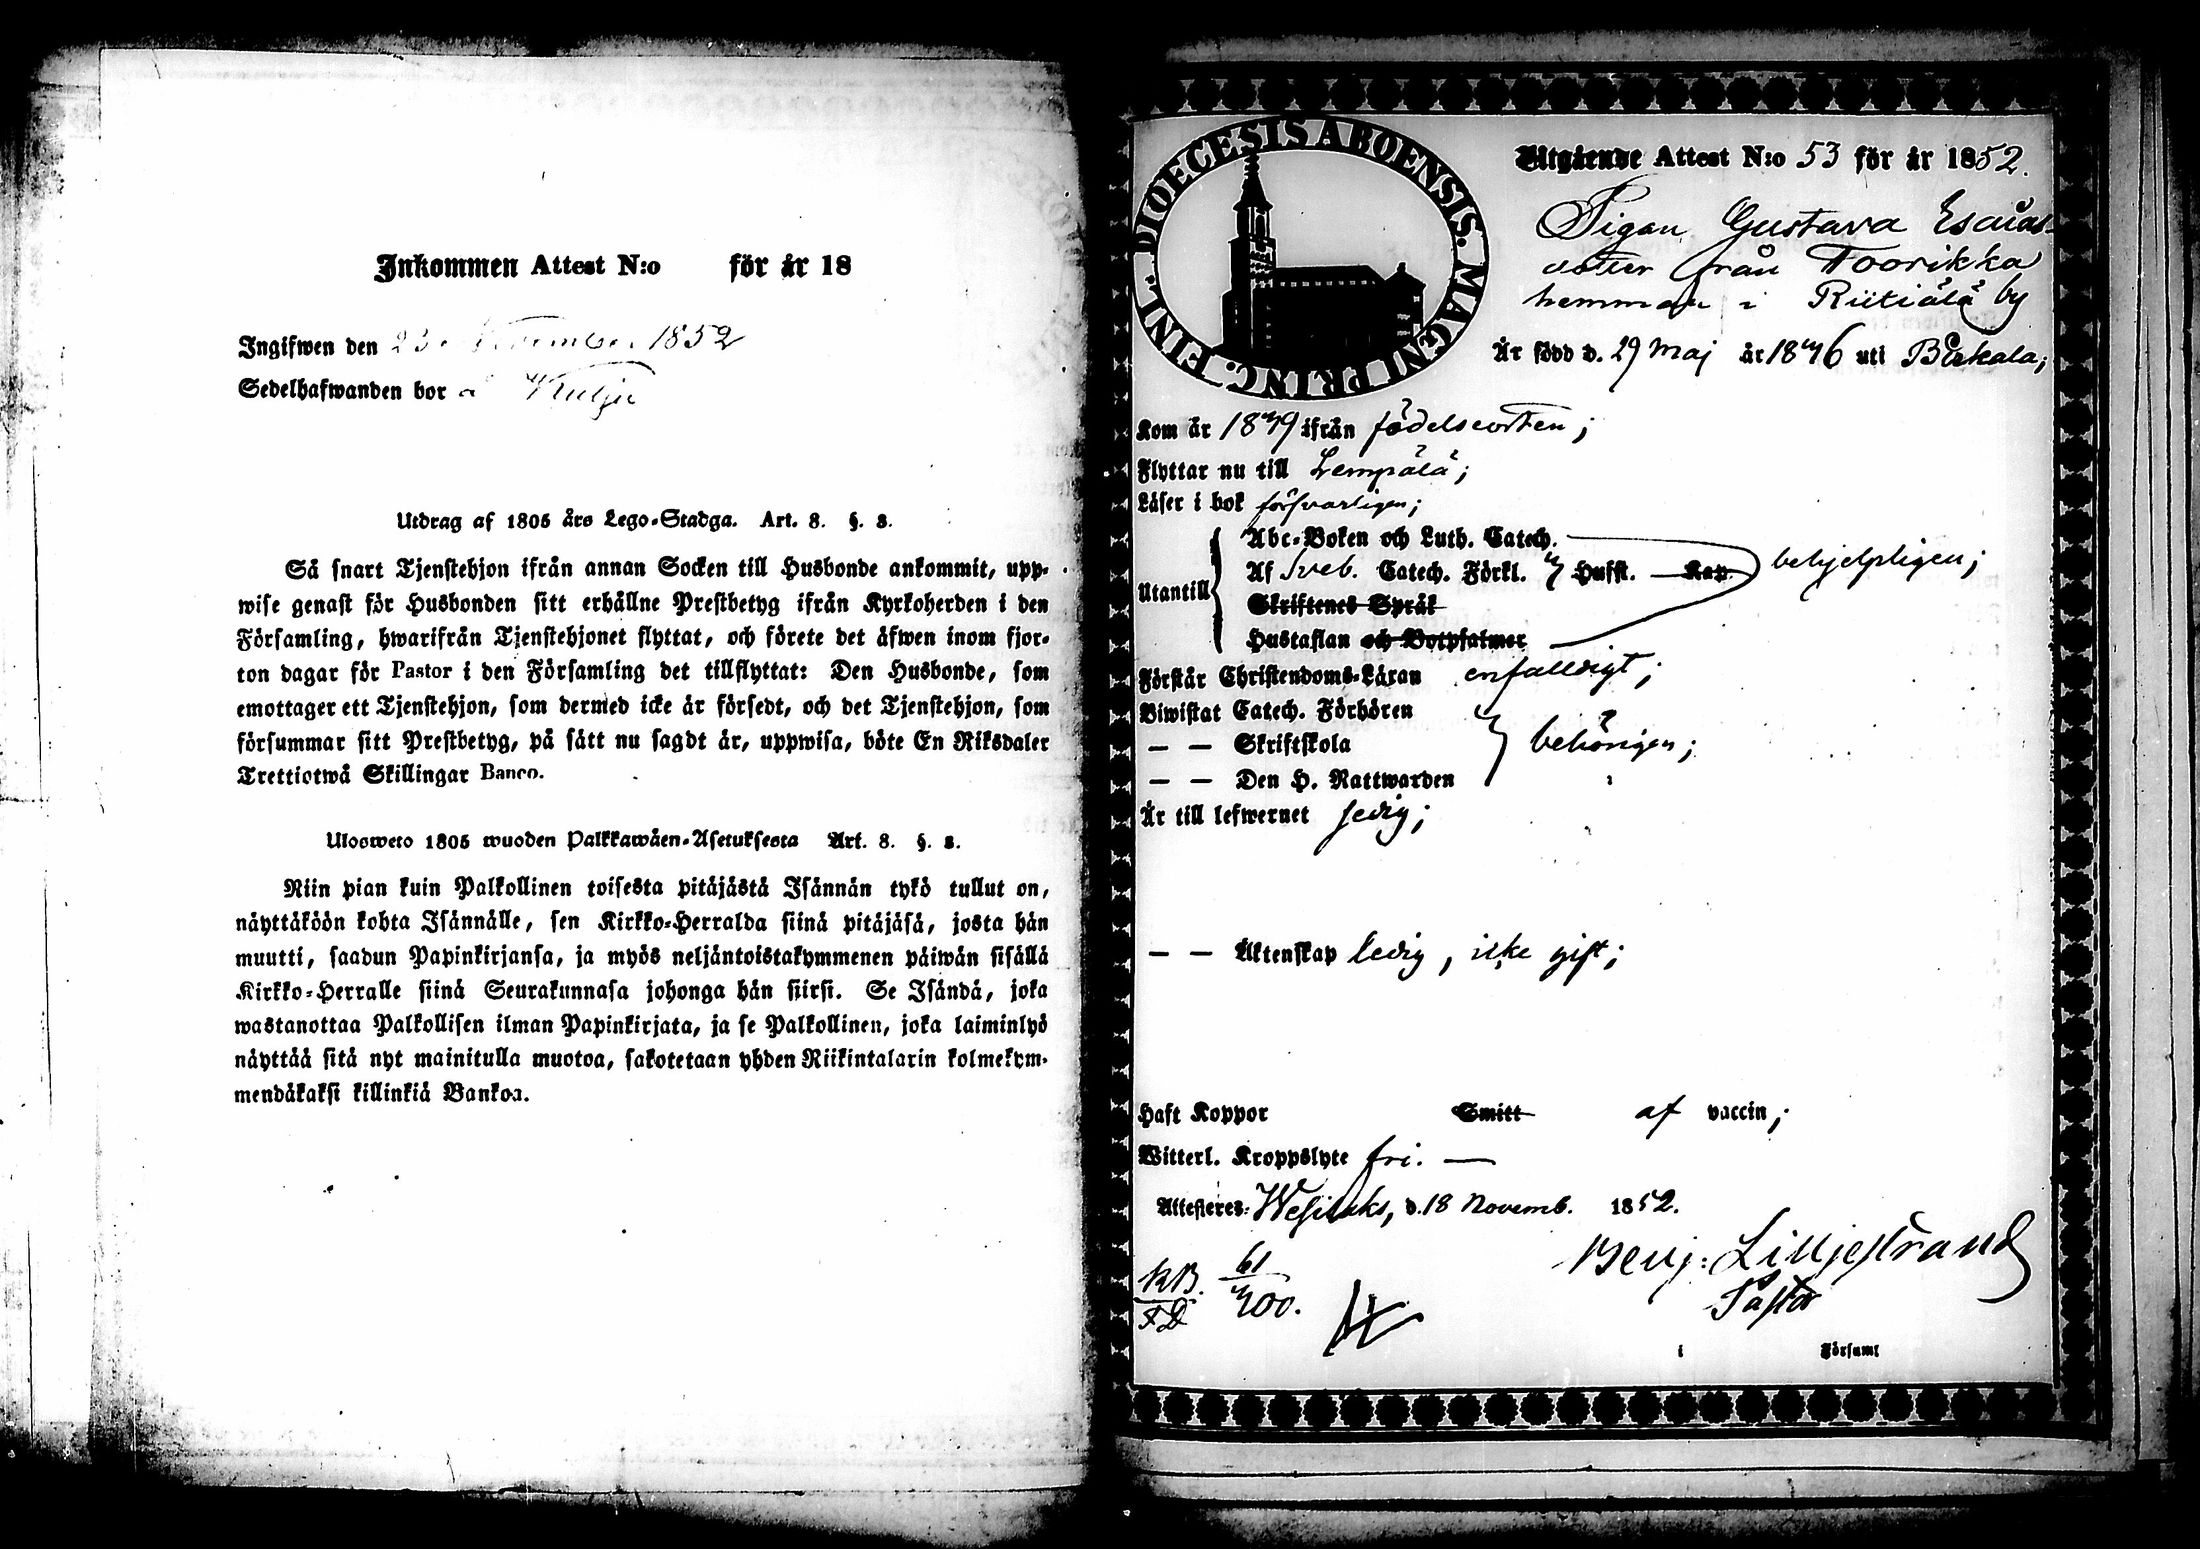 Inkommen Attest N:o för år 18
Ingifwen den 23 November 1852
Sedelhafwanden bor å Kulju
Utdrag af 1805 års Lego-Stadga. Art. 8. §. 3.
Så snart Tjenstehjon ifrån annan Socken till Husbonde ankommit, upp-
wise genast för Husbonden sitt erhållne Prestbetyg ifrån Kyrkoherden i den
Församling, hwarifrån Tjenstehjonet flyttat, och förete det äfwen inom fjor-
ton dagar för Pastor i den Församling det tillflyttat: Den Husbonde, som
emottager ett Tjenstehjon, som dermed icke är försedt, och det Tjenstehjon, som
försummar sitt Prestbetyg, på sätt nu sagdt är, uppwisa, böte En Riksdaler
Trettiotwå Skillingar Banco.
Ulosweto 1805 wuoden Palkkawäen-Asetuksesta Art. 8. §. 3.
Niin pian kuin Palkollinen toisesta pitäjästä Isännän tykö tullut on,
näyttäköön kohta Isännälle, sen Kirkko-Herralda siinä pitäjäsä, josta hän
muutti, saadun Papinkirjansa, ja myös neljäntoistakymmenen päiwän sisällä
Kirkko-Herralle siinä Seurakunnasa johonga hän siirsi. Se Isändä, joka
wastanottaa Palkollisen ilman Papinkirjata, ja se Palkollinen, joka laiminlyö
näyttää sitä nyt mainitulla muotoa, sakotetaan yhden Riikintalarin kolmekym-
mendäkaksi killinkiä Bankoa.
DIOECESIS ABOENSIS. MAGNI PRINC. FINL.
Utgående Attest N:o 53 för år 1852.
Pigan Gustava Esaias-
dotter från Toorikka
hemman i Riitiälä by
Är född d. 29 Maj år 1826 uti Birkala;
Kom år 1849 ifrån födelseorten;
Flyttar nu till Lempälä;
Läser i bok försvarligen;
Utantill
Abc-Boken och Luth. Catech.
Af Sveb. Catech. Förkl. Hufst. Kap. behjelpligen;
Skriftenes Språk
Hustaflan och Botpsalmer
Förstår Christendoms-Läran enfalldigt;
Biwistat Catech. Förhören
— — Skriftskola behörigen;
— — Den H. Nattwarden
Är till lefwernet sedig;
— — Äktenskap ledig, icke gift;
Haft Koppor Smitt af vaccin;
Witterl. Kroppslyte fri. —
Attesteres: Wesilaks, d. 18 Novemb. 1852.
Benj: Liljestrand
Pastor
KB. 61
FD 400.
i Församl